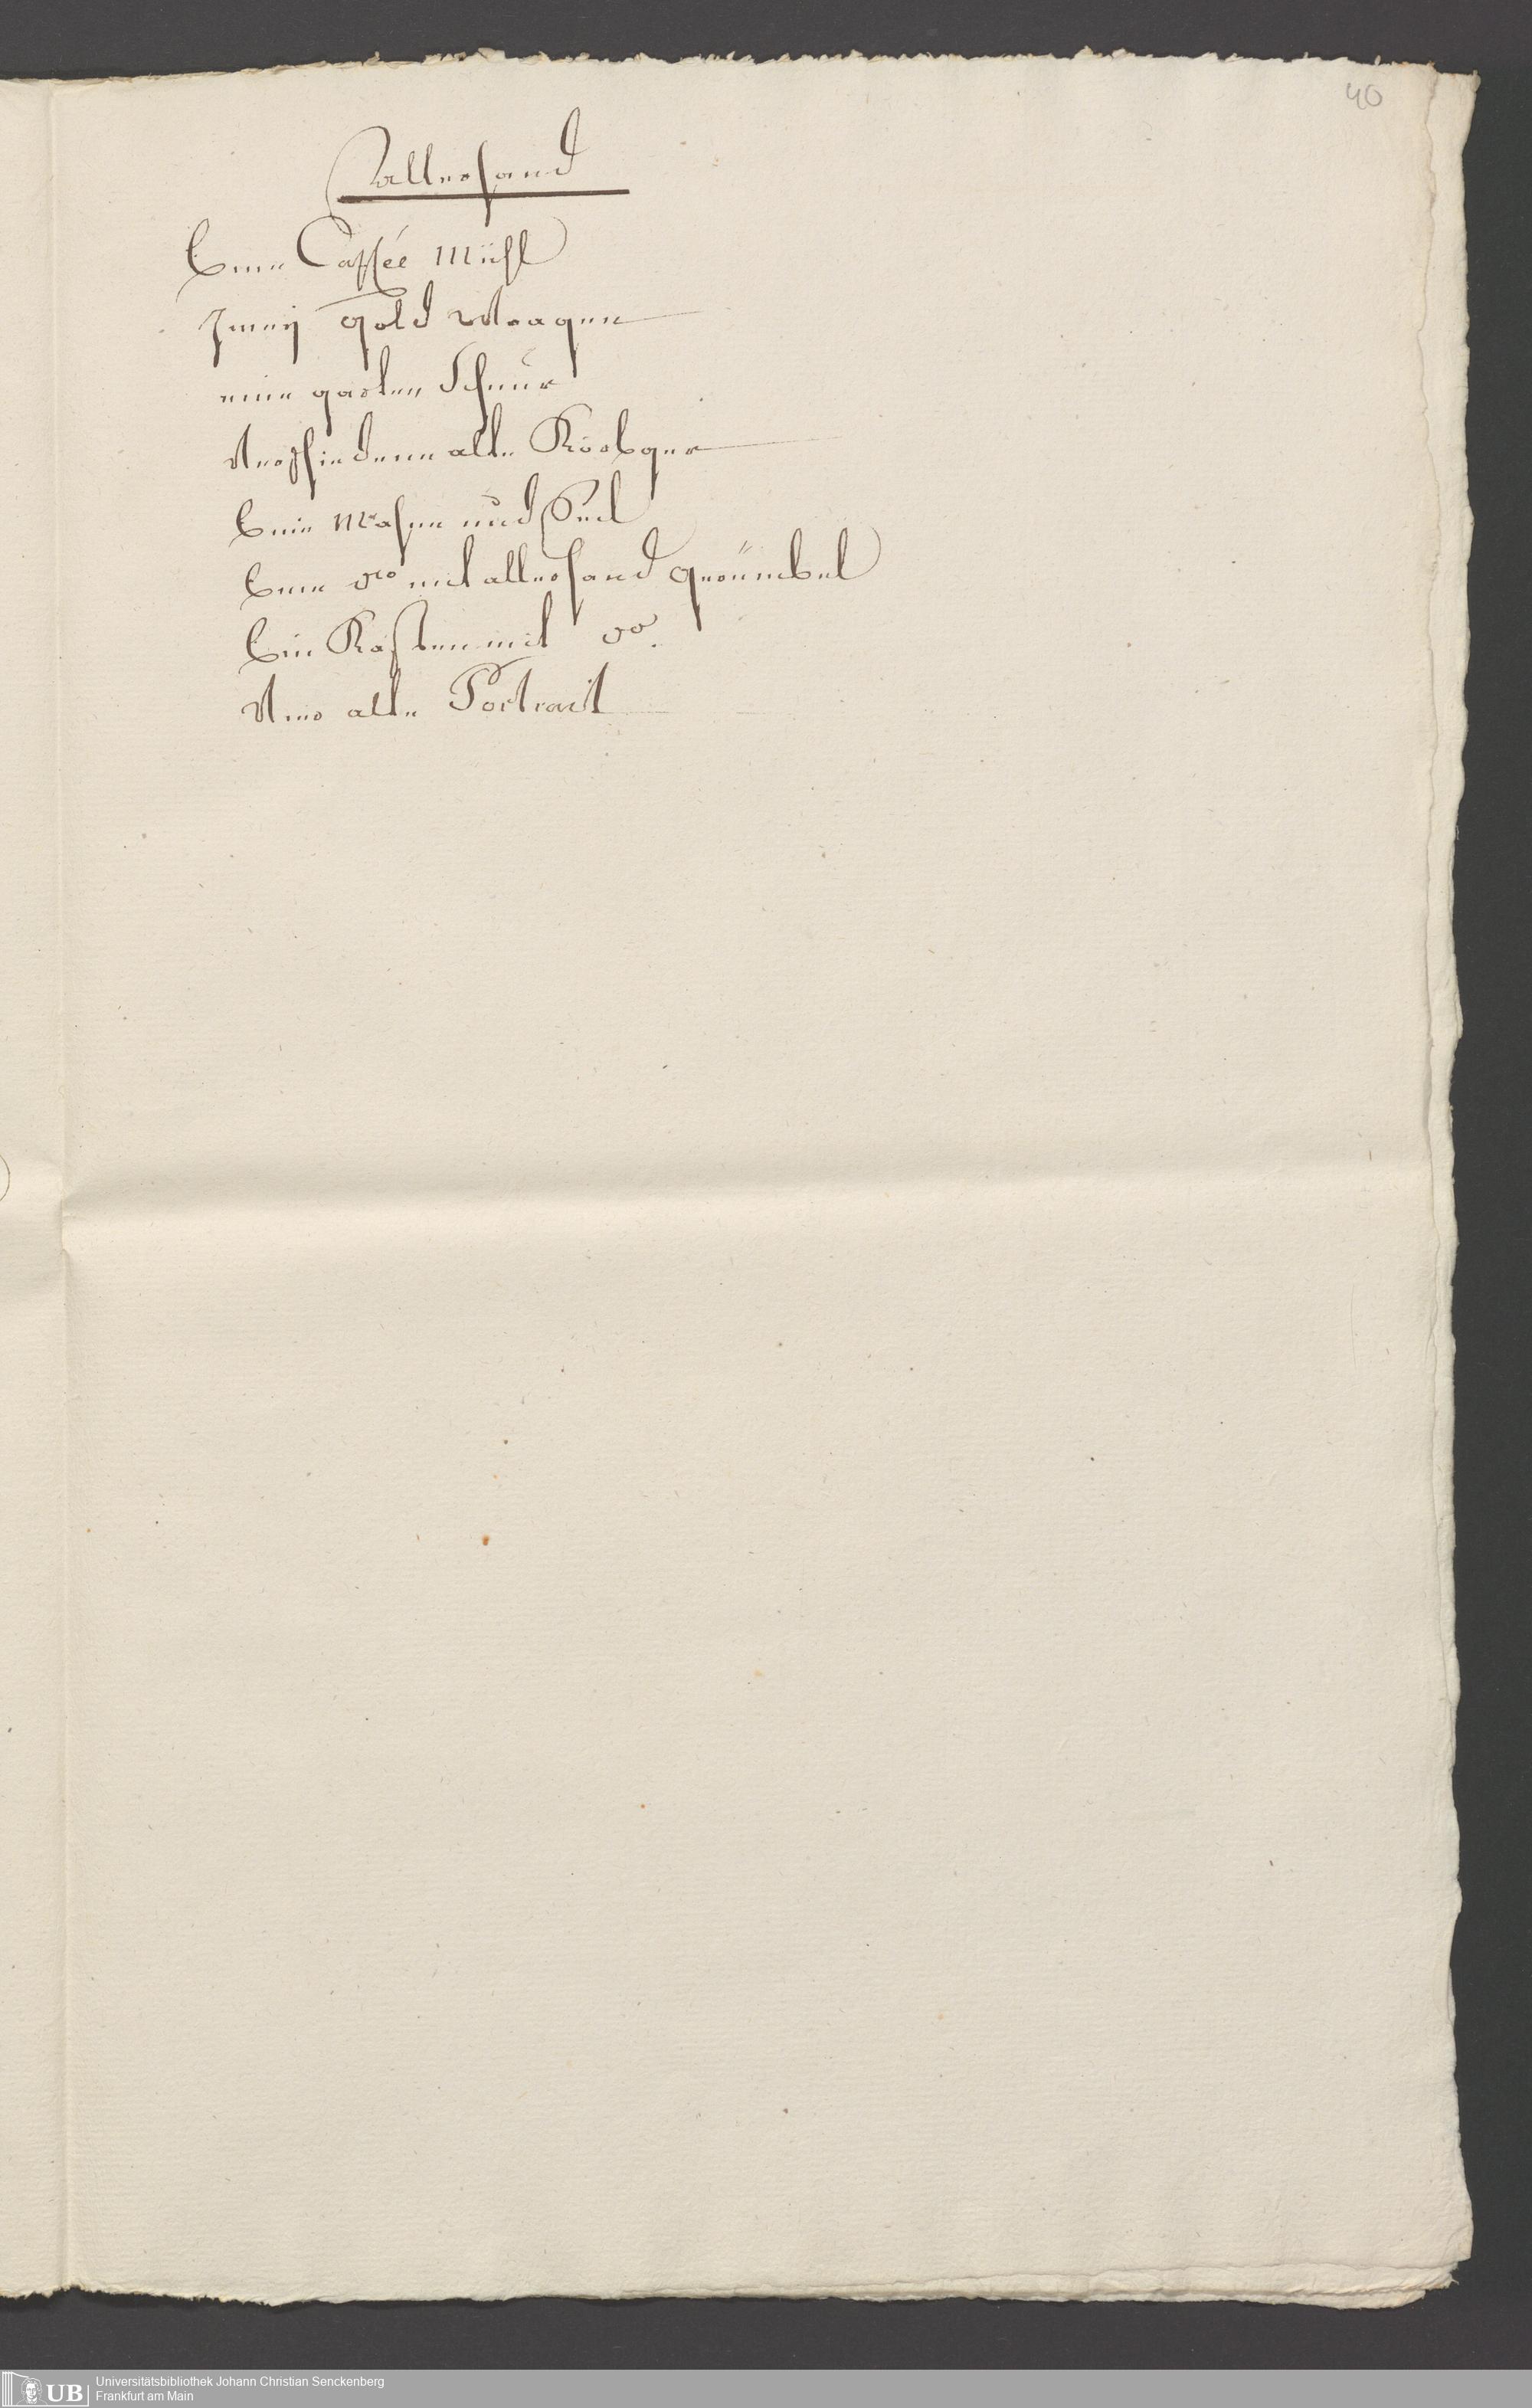 40
allerhand
Eine Caffée Mühl
Zweÿ Gold Waagen
eine garten Schnur
Verschiedene alte Körbger
Eine Mahne und
Eine dto mit allerhand gerümbel
Ein Kasten mit do.
Vier alte Portrait
UB
Universitätsbibliothek Johann Christian Senckenberg
Frankfurt am Main